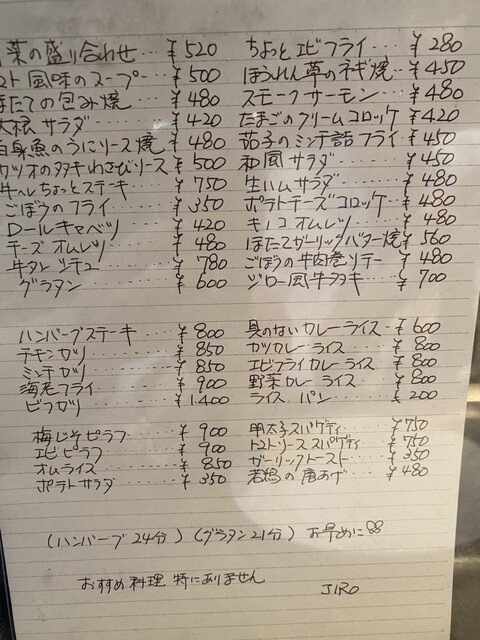 菜の盛り合わせ・・・¥520
ちょっとエビフライ・・・¥280
スト風味のスープ・・・¥500
ほうれん草のネギ焼・・・¥450
ほたての包み焼・・・¥480
スモークサーモン・・・¥480
大根サラダ・・・¥420
たまごのクリームコロッケ ¥420
白身魚のうにソース焼 ¥480
茄子のミンチ詰フライ ¥450
カツオのタタキわさびソース ¥500
和風サラダ・・・¥450
牛ヘレちょっとステーキ・・・¥750
生ハムサラダ・・・¥480
ごぼうのフライ・・・¥350
ポテトチーズコロッケ・・・¥480
ロールキャベツ・・・¥420
キノコオムレツ・・・¥480
チーズオムレツ・・・¥480
ほたてガーリックバター焼 ¥560
牛タンシチュー・・・¥780
ごぼうの牛肉巻ソテー・・・¥480
グラタン・・・¥600
ジロー風牛タタキ・・・¥700
ハンバーグステーキ・・・¥800
具のないカレーライス・・・¥600
チキンカツ・・・¥850
カツカレーライス・・・¥800
ミンチカツ・・・¥850
エビフライカレーライス・・・¥800
海老フライ・・・¥900
野菜カレーライス・・・¥800
ビフカツ・・・¥1400
ライス パン・・・¥200
梅じそピラフ・・・¥900
明太子スパゲティ・・・¥750
エビピラフ・・・¥900
トマトソーススパゲティ・・・¥750
オムライス・・・¥850
ガーリックトースト・・・¥350
ポテトサラダ・・・¥350
若鶏の唐あげ・・・¥480
(ハンバーグ24分)(グラタン21分) お早めに
おすすめ料理 特にありません
JIRO